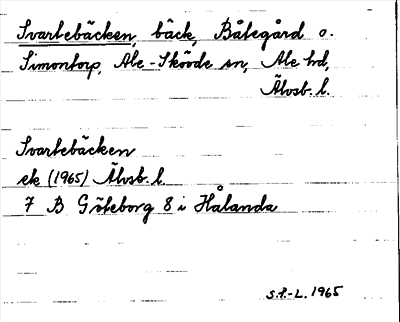 Svartebäcken, bäck, Båtegård o.
Simontorp, Ale-Skövde sn, Ale hd,
Älvsb. l.
Svartebäcken
ek (1965) Älvsb. l.
7 B Göteborg 8 i Hålanda
S.P.-L. 1965